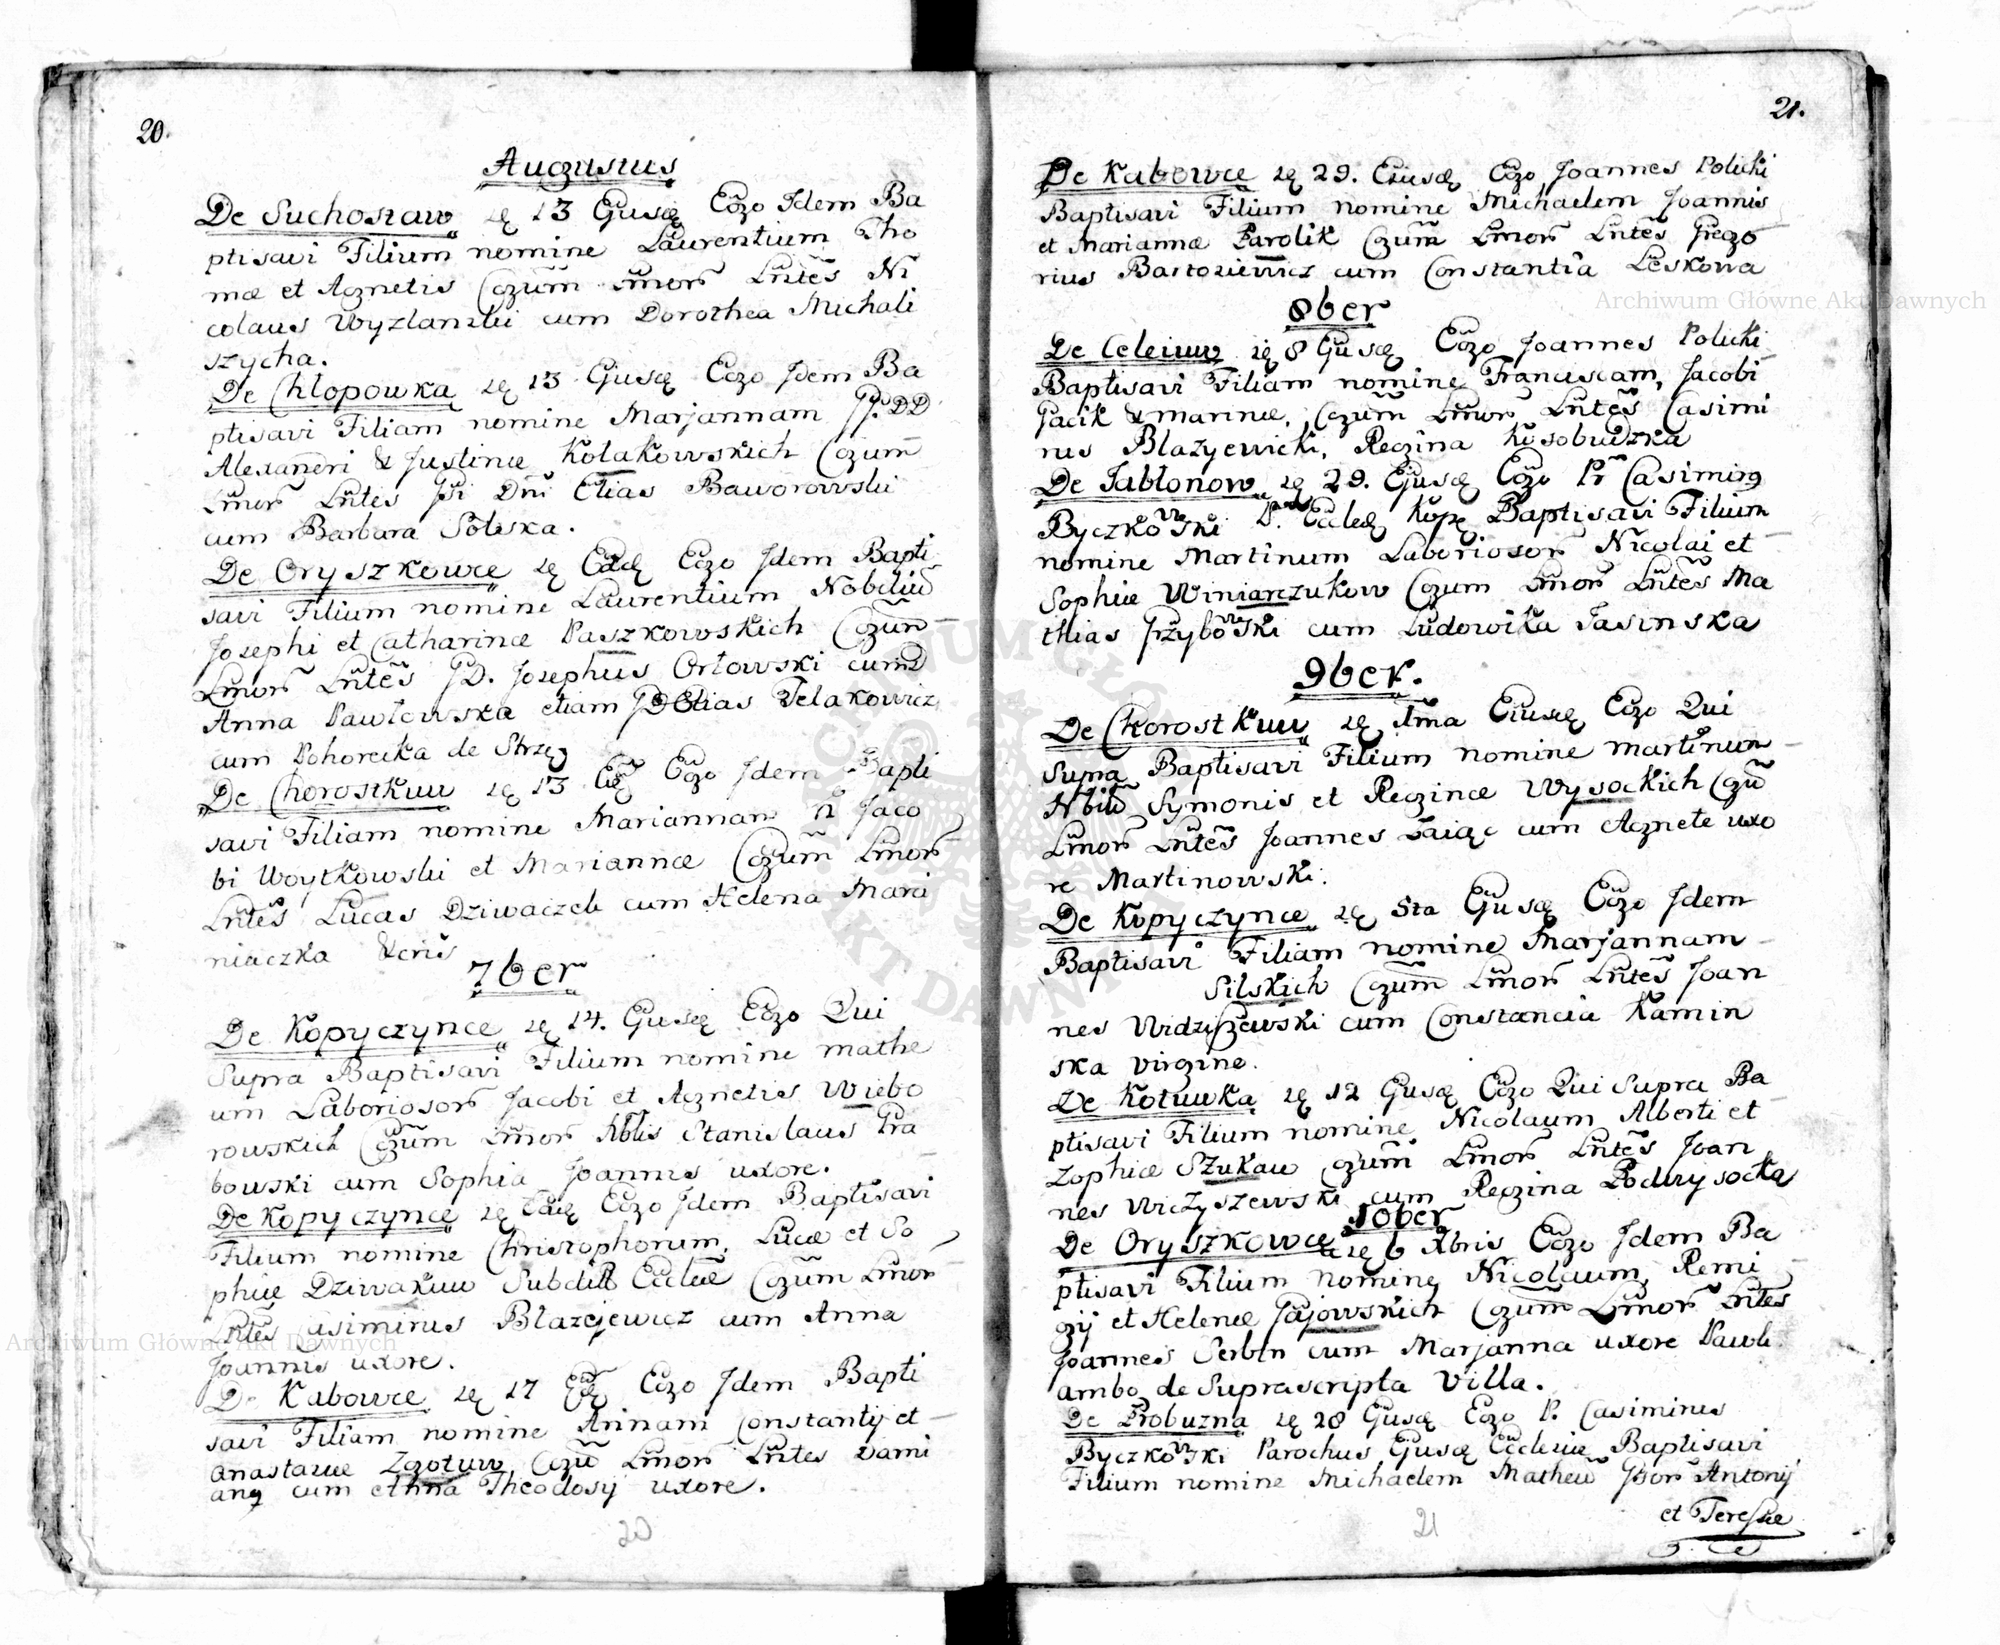 20.
Augustus
De Suchostaw ię 13 Ejusdę Ego Idem Ba
ptisavi Filium nomine Laurentium Tho
mæ et Agnetis Cozum Lmor Lntes Ni
colaus Wyzlanski cum Dorothea Michali
szycha.
De Chłopowka ię 13 Ejusdę Ego Idem Ba
ptisavi Filiam nomine Marjannam PP. DD
Alexandri & Justinæ Kołakowskich Cozum
Lmor Lntes Dni Elias Baworowski
cum Barbara Solska.
De Oryszkowce ię Eadę Ego Idem Bapti
savi Filium nomine Laurentium Nobiliu
Josephi et Catharinæ Paszkowskich Cozum
Lmor Lntes D. Josephus Orłowski cum
Anna Pawłowska etiam Elias Telakowicz
cum Pohorecka de
De Chorostkuw ię 13 Ego Idem Bapti
savi Filiam nomine Mariannam Jaco
bi Woytkowski et Mariannæ Cozum Lmor
Lntes Lucas Dziwaczek cum Helena Marci
niaczka
7ber
De Kopyczynce ię 14. Ejusdę Ego Qui
Supra Baptisavi Filium nomine mathe
um Laboriosor Jacobi et Agnetis Wiebo
rowskich Cozum Lmor Nblis Stanislaus Gra
bowski cum Sophia Joannis uxore.
De Kopyczynce ię Eadę Ego Idem Baptisavi
Filium nomine Christophorum, Lucæ et So
phiæ Dziwakuw Subdit Ecclæ Cozum Lmor
Lntes Casimirus Blazejewicz cum Anna
Joannis uxore.
De Kabowce ię 17 Ego Idem Bapti
savi Filiam nomine Annam Constantij et
anastasiæ Zgotuw Cozu Lmor Lntes Dami
anę cum Anna Theodosij uxore.
20
21.
De Kabowce ię 29. Eiusdę Ego Joannes Policki
Baptisavi Filium nomine Michaelem Joannis
et Mariannæ Parolik Cozum Lmor Lntes Grego
rius Bartoziewicz cum Constantia Leskowa
8ber
De Celeiuw ię 8 Ejusdę Ego Joannes Policki
Baptisavi Filiam nomine Franciscam, Jacobi
Gacik & marinæ, Cozum Lmor Lntes Casimi
rus Blazyewicki, Regina Kosobudzka
De Jabłonow ię 29. Ejusdę Ego Pr Casimirq
Byczkowski P. Ecclæ Kopę Baptisavi Filium
nomine Martinum Laboriosor Nicolai et
Sophiæ Winiarczukow Cozum Lmor Lntes Ma
thias Przybowski cum Ludowika Jasinska
9ber.
De Chorostkuw ię Ima Eiusdę Ego Qui
supra Baptisavi Filium nomine martinum
Nbiu Symonis et Reginæ Wysockich Cozu
Lmor Lntes Joannes Zaiąc cum Agnete uxo
re Martinowski.
De Kopyczynce ię 5ta Ejusdę Ego Idem
Baptisavi Filiam nomine Marjannam
Silskich Cozum Lmor Lntes Joan
nes Widziszewski cum Constancia Kamin
ska virgine.
De Kotuwka ię 12 Ejusdę Ego Qui Supra Ba
ptisavi Filium nomine Nicolaum Alberti et
Zophiæ Szukaw Cozum Lmor Lntes Joan
nes Wiczyszewski cum Regina Podwysocka
10ber
De Oryszkowce ię 6 Xbris Ego Idem Ba
ptisavi Filium nomine Nicolaum, Remi
gij et Helenæ Gajowskich Cozum Lmor Lntes
Joannes Serbin cum Marjanna uxore Pawli
ambo de Suprascripta Villa.
De Probuzna ię 28 Ejusdę Ego P. Casimirus
Byczkowski Parochus Ejusdę Ecclesiæ Baptisavi
Filium nomine Michaelem Matheu Antonij
et Teresiæ
21
Archiwum Główne Akt Dawnych
Archiwum Główne Akt Dawnych
ARCHIWUM GŁÓWNE AKT DAWNYCH